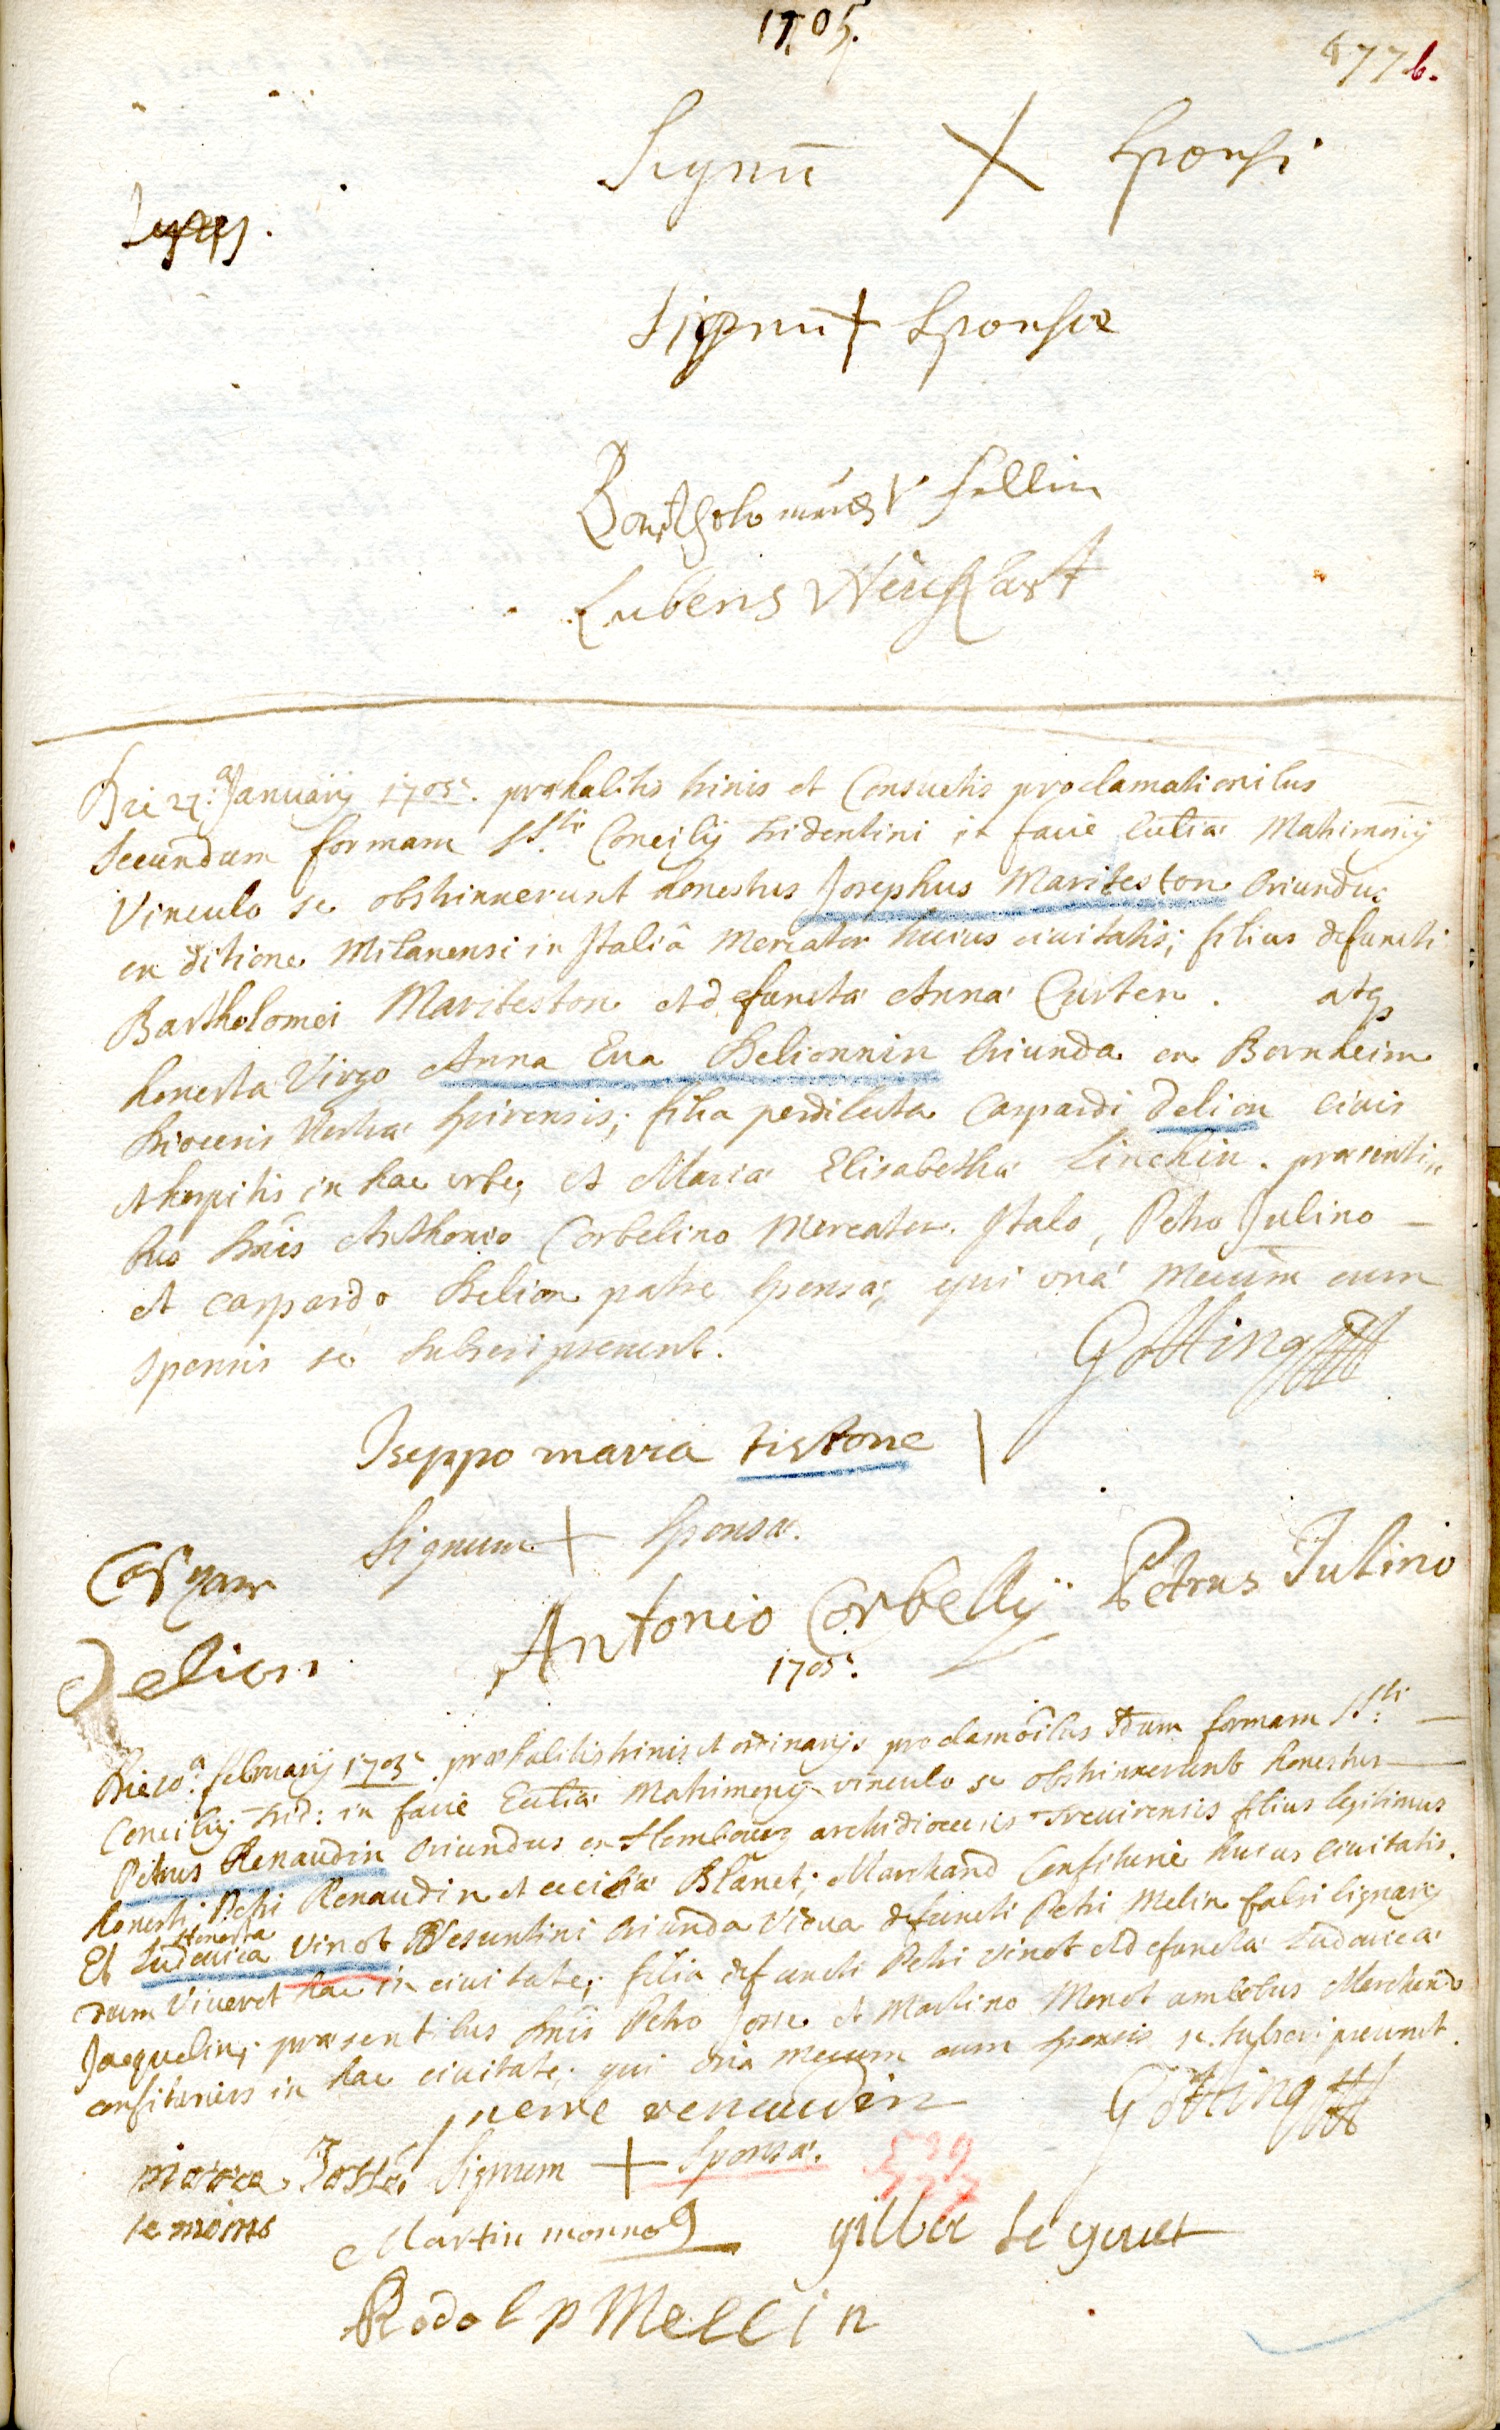 1705.
77 b.
Signū X sponsi
Signū + sponsæ
Bartholomeus Fellin
Lubens
Die 27.a Januarij 1705. præhabitis trinis et Consuetis proclamationibus
secundum formam SS.ti Concilij tridentini in facie Ecclīæ Matrimonij
Vinculo se obstrinxerunt honestus Josephus Mariteston Oriundus
ex ditione Milanensi in Italiâ Mercator huius civitatis; filius defuncti
Bartholomei Mariteston et defunctæ Annæ Curten. atq
honesta Virgo Anna Eva Delionnin Oriunda ex Bornheim
Diœcesis Spirensis; filia perdilecta Caspardi Delion civis
et hospitis in hac urbe, et Mariæ Elisabethæ Linckin. præsenti„
bus Dn̄is Anthonio Corbelino Mercator. Italo, Petro Julino —
et caspardo Delion patre sponsæ, qui unà mecum cum
sponsis se subscripserunt. Gotting
Iseppo maria tistone
Signum + sponsæ.
Caspar
Delion
Antonio Corbellÿ Petrus Julino
1705.
Die 10.a february 1705. præhabitis trinis et ordinarijs proclamōibus sdum formam SS.ti —
Concilij trid: in facie Ecclīæ Matrimonij vinculo se obstrinxerunt honestus —
Petrus Renaudin Oriundus ex Hombourg archidiœcesis Trevirensis filius legitimus
honesti Petri Renaudin et ceciliæ Blanet; Marchand Confiturie huius civitatis.
Et honesta Ludovica Vinot Vesuntini Oriunda Vidua defuncti Petri Melin fabri lignarij
dum viveret hac in civitate; filia defuncti Petri Vinot et defunctæ Ludovicæ
Jacquelin; præsentibus Dn̄is Petro Josse et Martino Monot ambobus Marchand
confituriers in hac civitate; qui unà mecum cum sponsis se subscripserunt.
pierre renaudin Gotting
Signum + Sponsæ.
temoins
Martin monnot
Rodolp Mellin